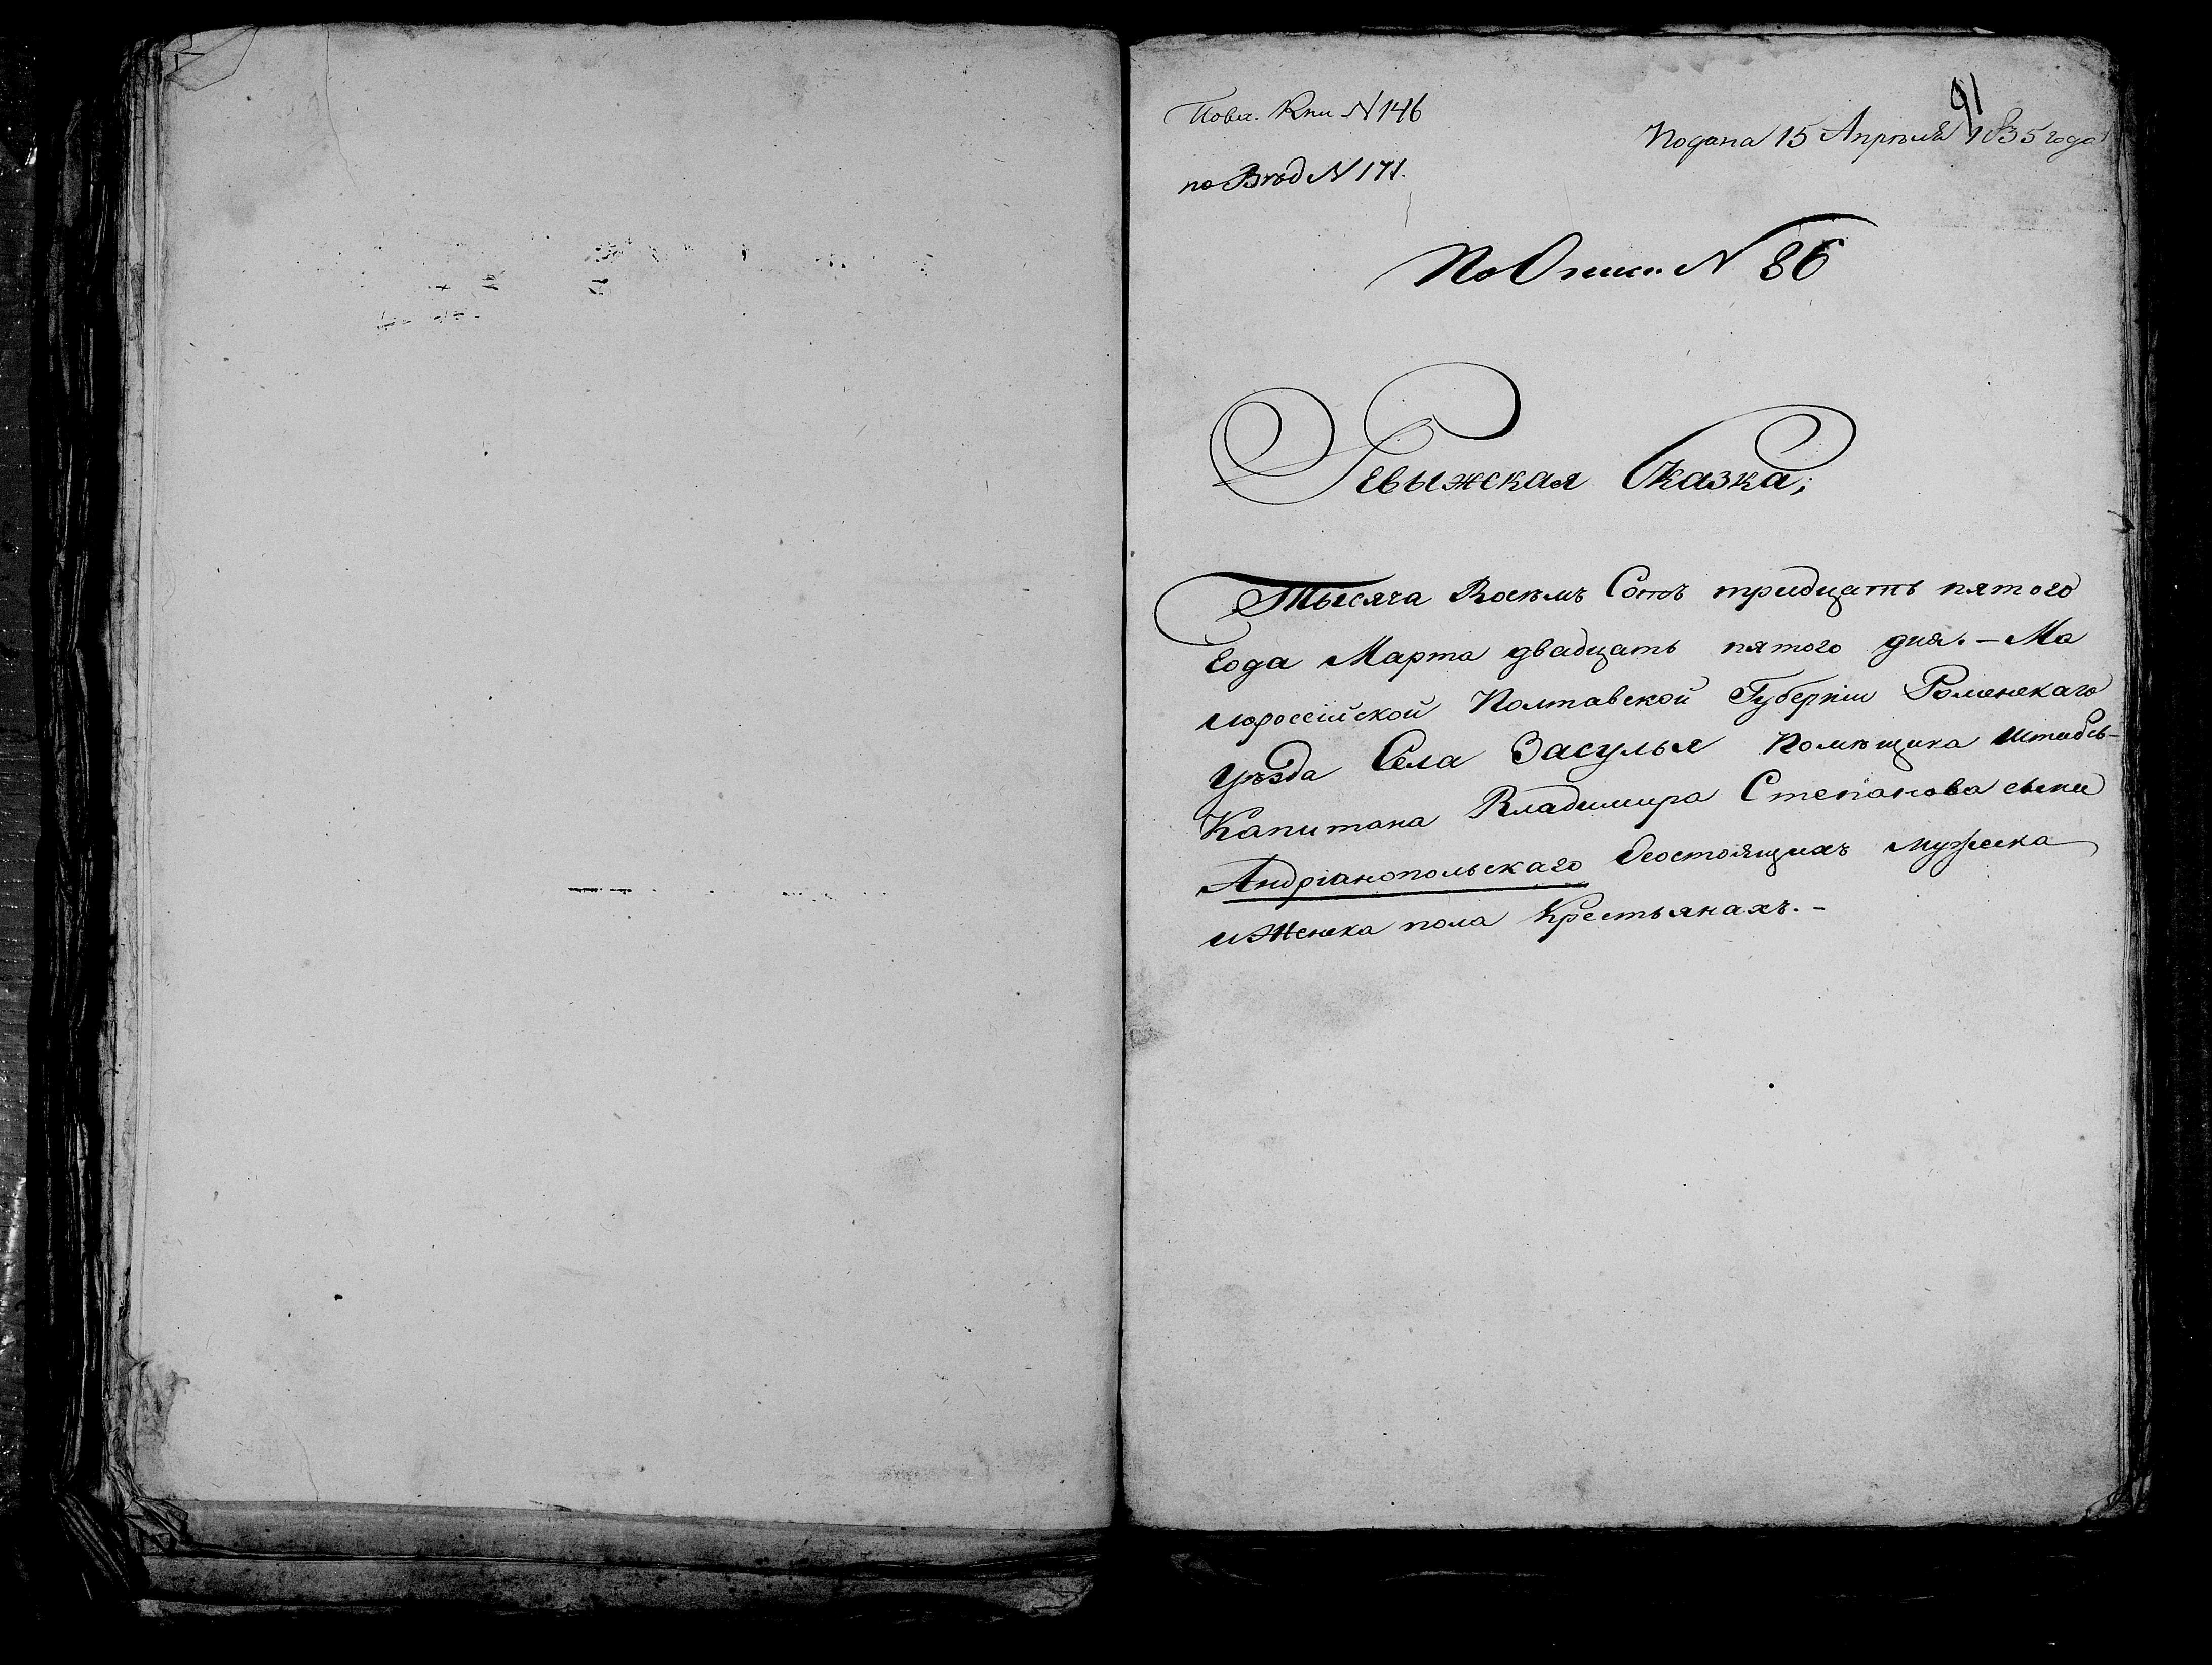 91
Повѣ. Кни N 146
Подана 15 Апрѣля 1835 года
по Вѣд N 171.
По Описи N 86
Ревыжская Сказка;
Тысяча Восѣмъ Сотъ тридцать пятого
Года Марта двадцать пятого дня. – Ма
лороссійской Полтавской Губерніи Роменскаго
уѣзда Села Засулья Помѣщика Штабсъ-
Капитана Владимира Степанова сына
Андріанопольскаго осостоящихъ мужеска
и Женска пола Крестьянахъ. –